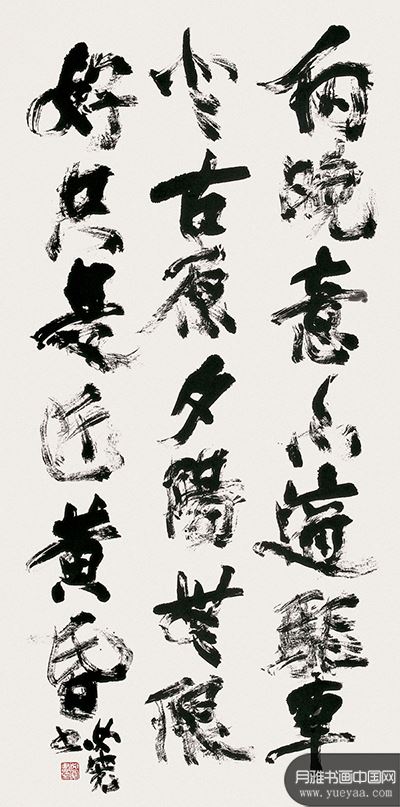 向晚意不適驅車
登古原夕陽無限
好只是近黄昏
月雅书画中国网
www.yueyaa.com